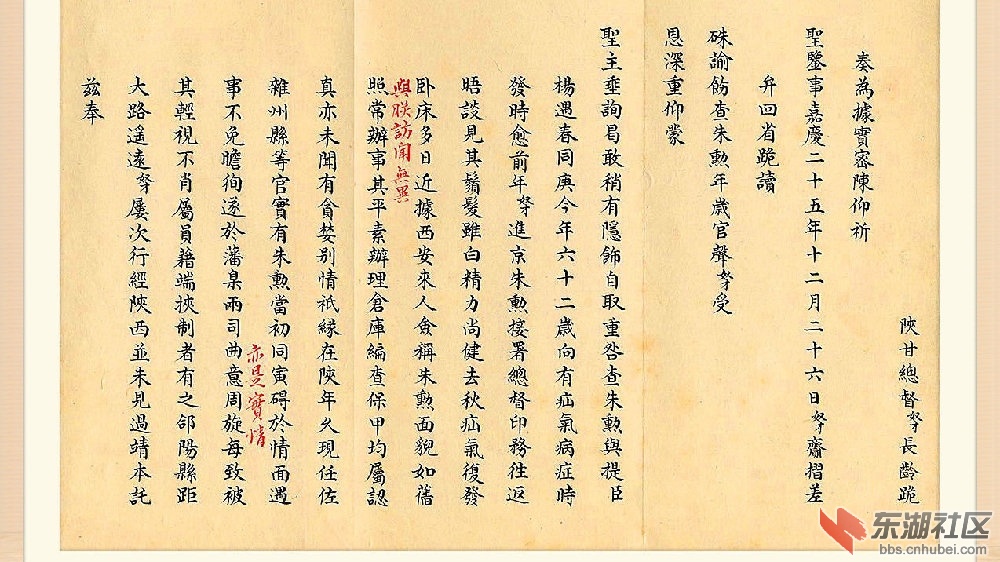 陝甘總督奴才長齡跪
奏為據實密陳仰祈
聖鑒事嘉慶二十五年十二月二十六日奴才齎摺差
弁回省跪讀
硃諭飭查朱勲年歲官聲奴才受
恩深重仰蒙
聖主垂詢曷敢稍有隱飾自取重咎查朱勲與提臣
楊遇春同庚今年六十二歲向有疝氣病症時
發時愈前年奴才進京朱勲接署總督印務往返
晤談見其鬚髮雖白精力尚健去秋疝氣復發
卧床多日近據西安來人僉稱朱勲面貌如舊
與朕訪聞無異
照常辦事其平素辦理倉庫編查保甲均屬認
真亦未聞有貪婪別情祇緣在陝年久現任佐
雜州縣等官實有朱勲當初同寅碍於情面遇
亦是實情
事不免瞻徇遂於藩臬兩司曲意周旋每致被
其輕視不肖屬員藉端挾制者有之郃陽縣距
大路遥遠奴才屢次行經陝西並未見過靖本託
兹奉
东湖社区
bbs.cnhubei.com